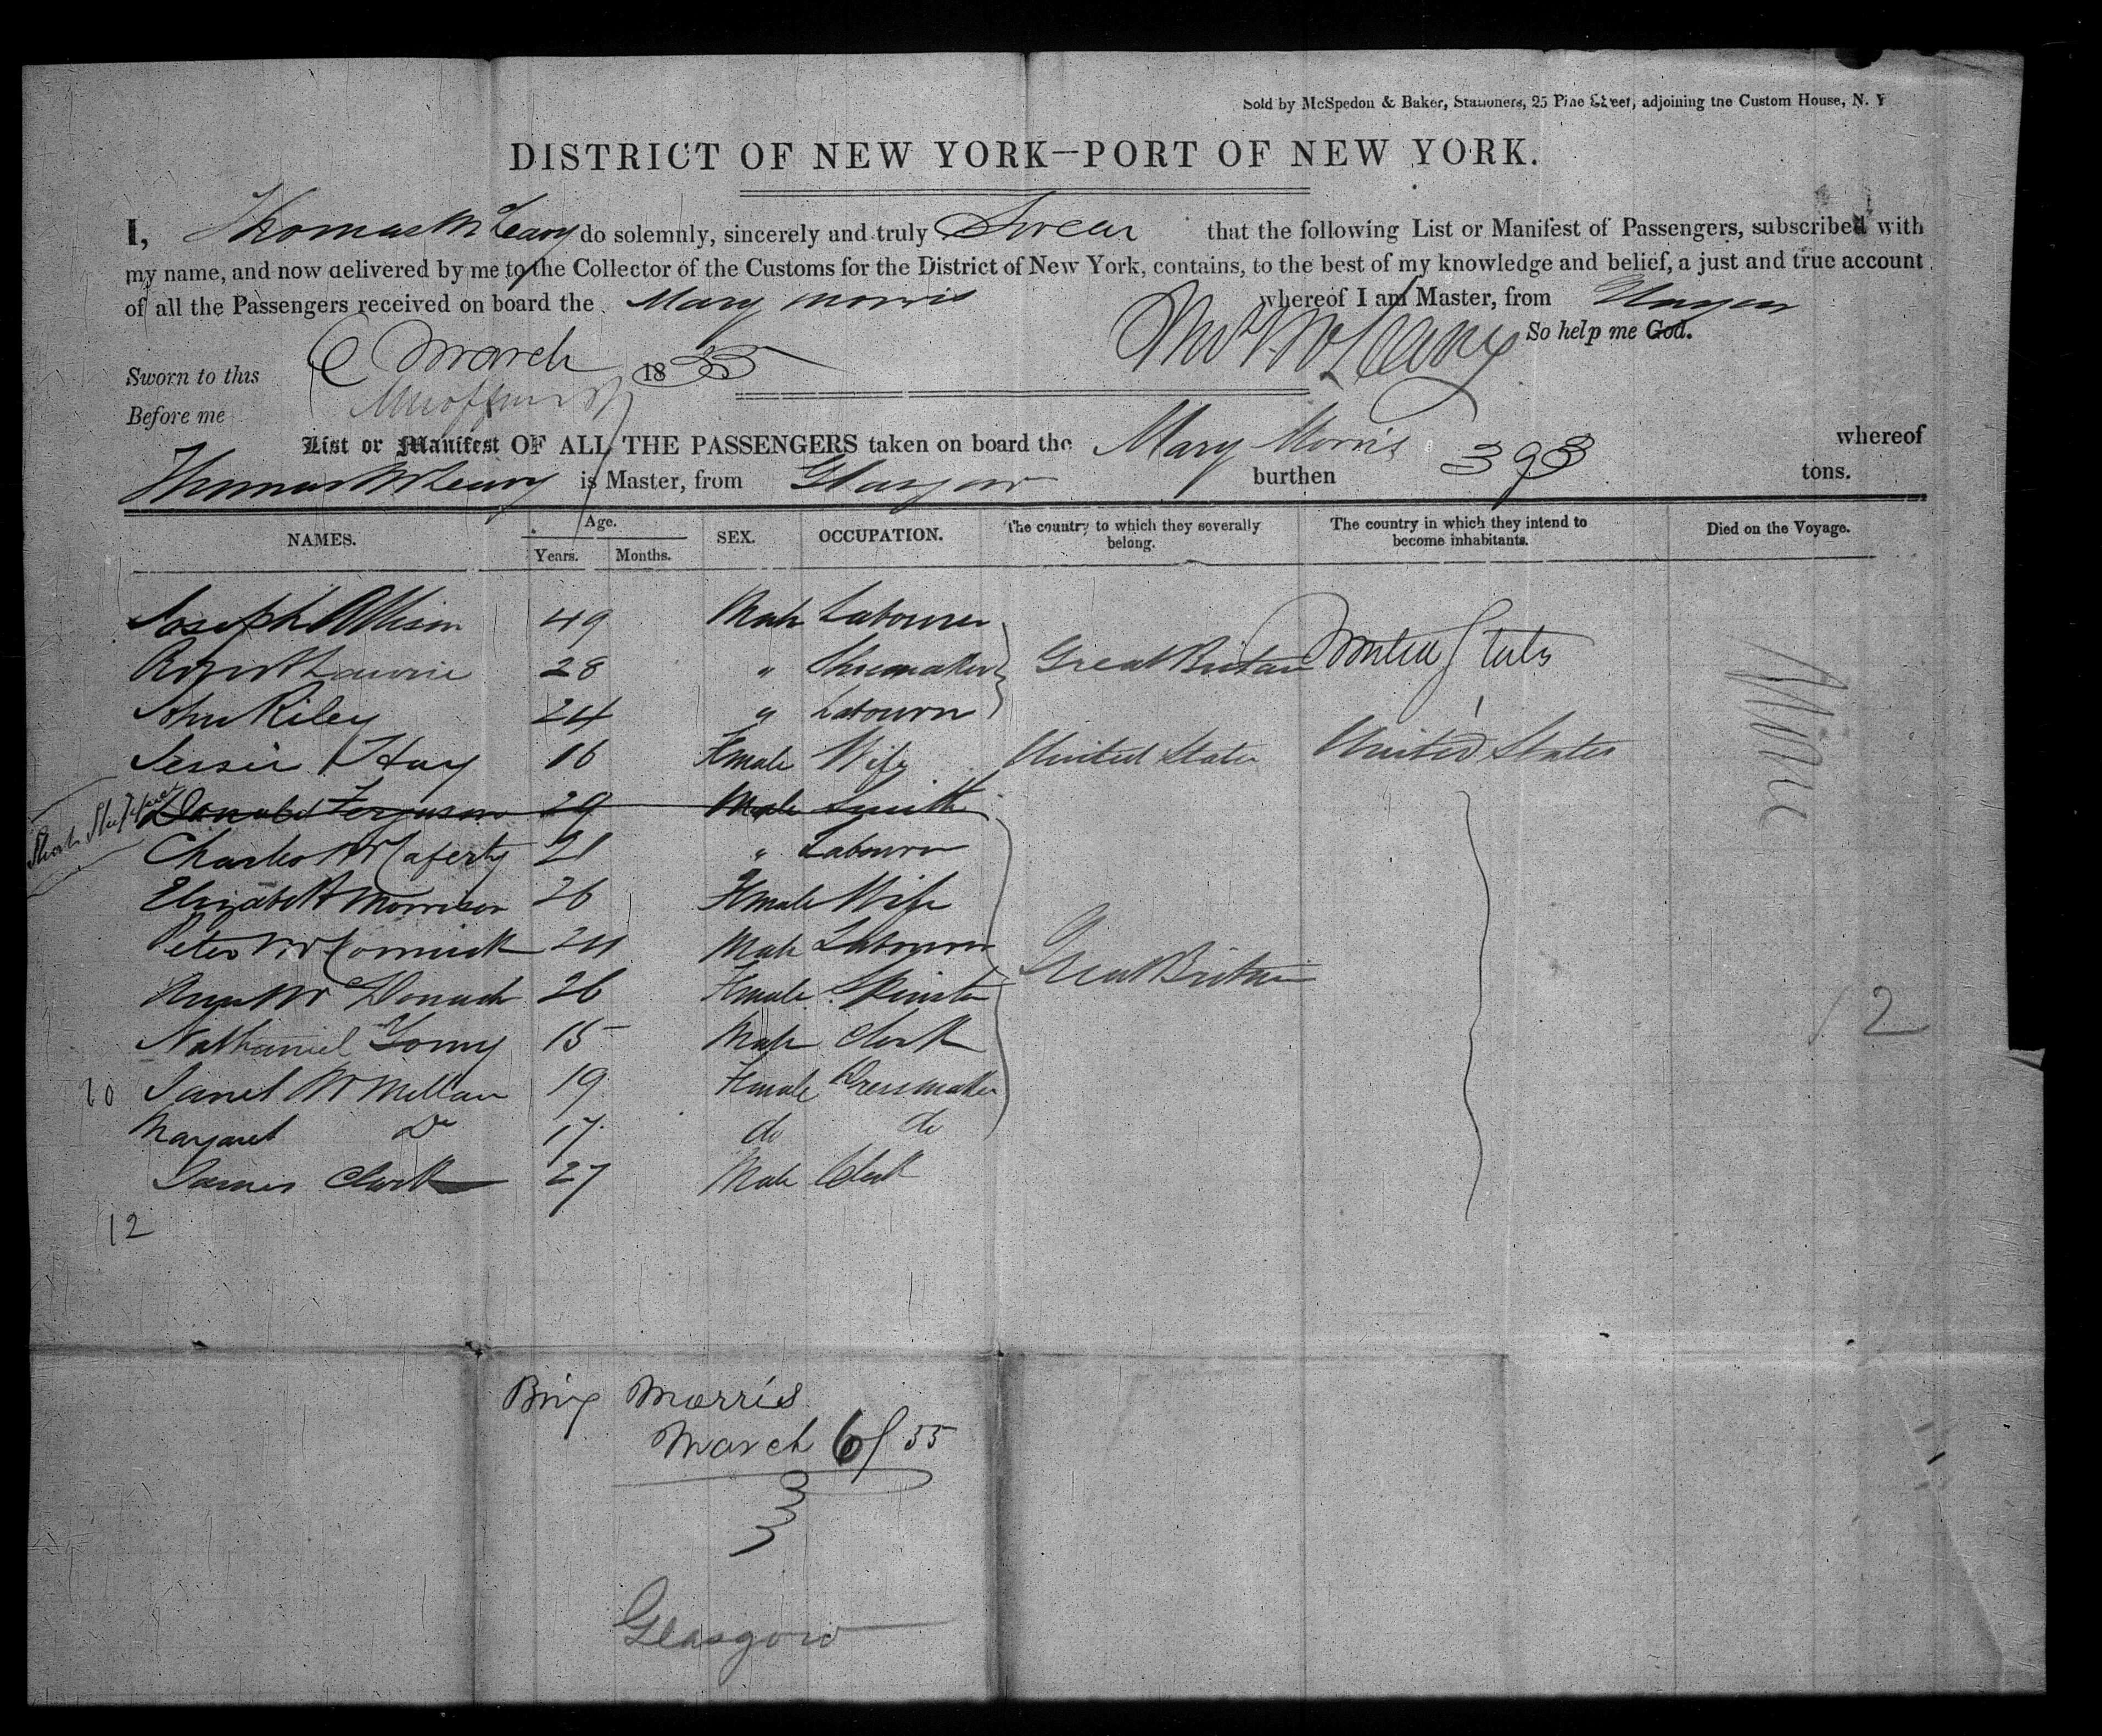 Sold by McSpedon & Baker, Stationers, 25 Pine Street, adjoining the Custom House, N. Y
DISTRICT OF NEW YORK—PORT OF NEW YORK.
I, Thomas McLeavy do solemnly, sincerely and truly Swear that the following List or Manifest of Passengers, subscribed with
my name, and now delivered by me to the Collector of the Customs for the District of New York, contains, to the best of my knowledge and belief, a just and true account
of all the Passengers received on board the Mary Morris whereof I am Master, from Glasgow
So help me God.
Thos McLeavy
Sworn to this 6 March 1855
Before me
List or Manifest OF ALL THE PASSENGERS taken on board the Mary Morris whereof
Thomas McLeavy is Master, from Glasgow burthen 393 tons.
NAMES. Age. Years. Months. SEX. OCCUPATION. The country to which they severally belong. The country in which they intend to become inhabitants. Died on the Voyage.
Joseph Allison 49 Male Labourer
Robert Lawrie 28 " Shoemaker Great Britain United States
John Riley 24 " Labourer
Jessie Hay 16 Female Wife United States United States None
Donald Ferguson 29 Male Smith
Charles McCaferty 21 " Labourer
Elizabeth Morrison 26 Female Wife
Peter McCormick 24 Male Labourer Great Britain
McDonach 26 Female Spinster
Nathaniel 15 Male Clerk 12
10 Janet McMillan 19 Female Dressmaker
Margaret Do 17 do do
James Clark 27 Male Clerk
12
Brig Morris
March 6/55
Glasgow